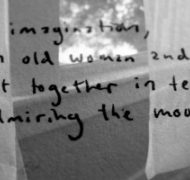 imagination,
old woman and
t together in te
lmiring the moo